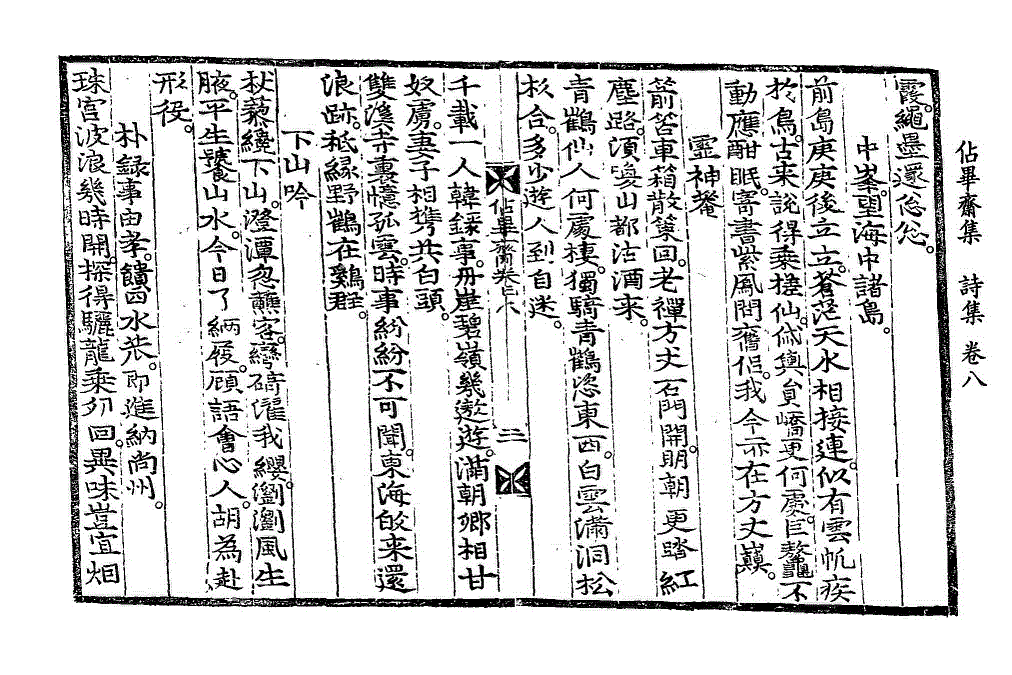 佔畢齋集 詩集 卷八
霞。繩墨還怱怱。
中峯。望海中諸島。
前島庚庚後立立。蒼茫天水相接連。似有雲帆疾
於鳥。古来說得乘槎仙。岱輿員嶠更何處。巨鼇不
動應酣眠。寄書紫鳳問舊侶。我今亦在方丈巔。
靈神菴
箭筈車箱散策回。老禪方丈石門開。明朝更踏紅
塵路。須喚山都沽酒来。
青鶴仙人何處棲。獨騎青鶴恣東西。白雲滿洞松
杉合。多少遊人到自迷。
佔畢齋卷之八
三
千載一人韓錄事。丹崖碧嶺幾遨遊。滿朝卿相甘
奴虜。妻子相携共白頭。
雙溪寺裏憶孤雲。時事紛紛不可聞。東海飯来還
浪跡。秪緣野鶴在鷄群。
下山吟
杖藜纔下山。澄潭忽蘸客。彎碕濯我纓。瀏瀏風生
腋。平生饕山水。今日了緉屐。顧語會心人。胡為赴
形役。
朴錄事由孝。饋西水苽。即進納尚州。
珠宮波浪幾時開。探得驪龍乘夘回。異味豈宜烟